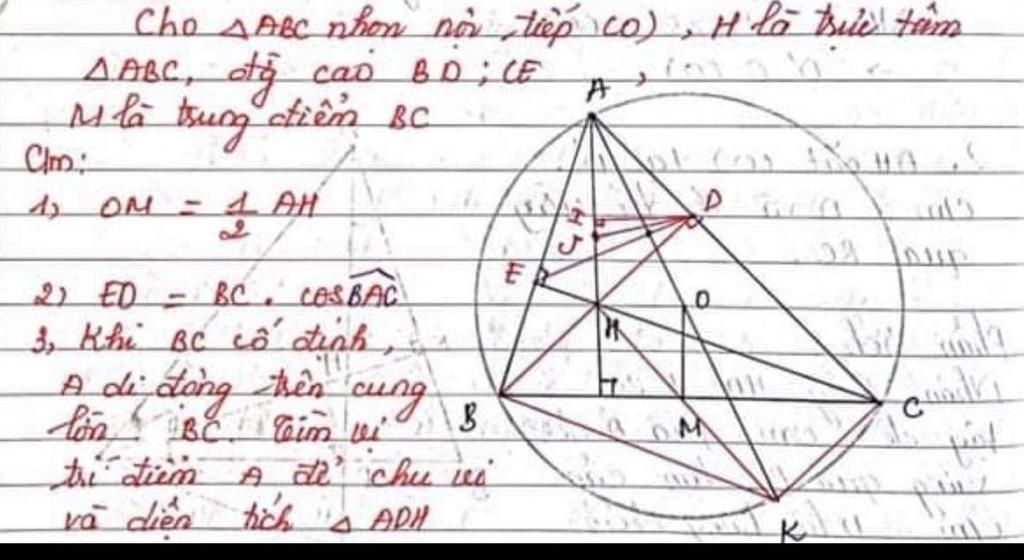 Cho △ABC nhọn nội tiếp (O), H là trực tâm
△ABC, đg̃ cao BD; CE,
M là trung điểm BC
Cm:
1, OM = 1/2 AH
2) ED = BC . cos BAC
3, Khi BC cố định,
A di động trên cung
lớn BC. Tìm vị
trí điểm A để chu vi
và diện tích △ ADH
A
I
D
J
E
O
H
B
M
C
K